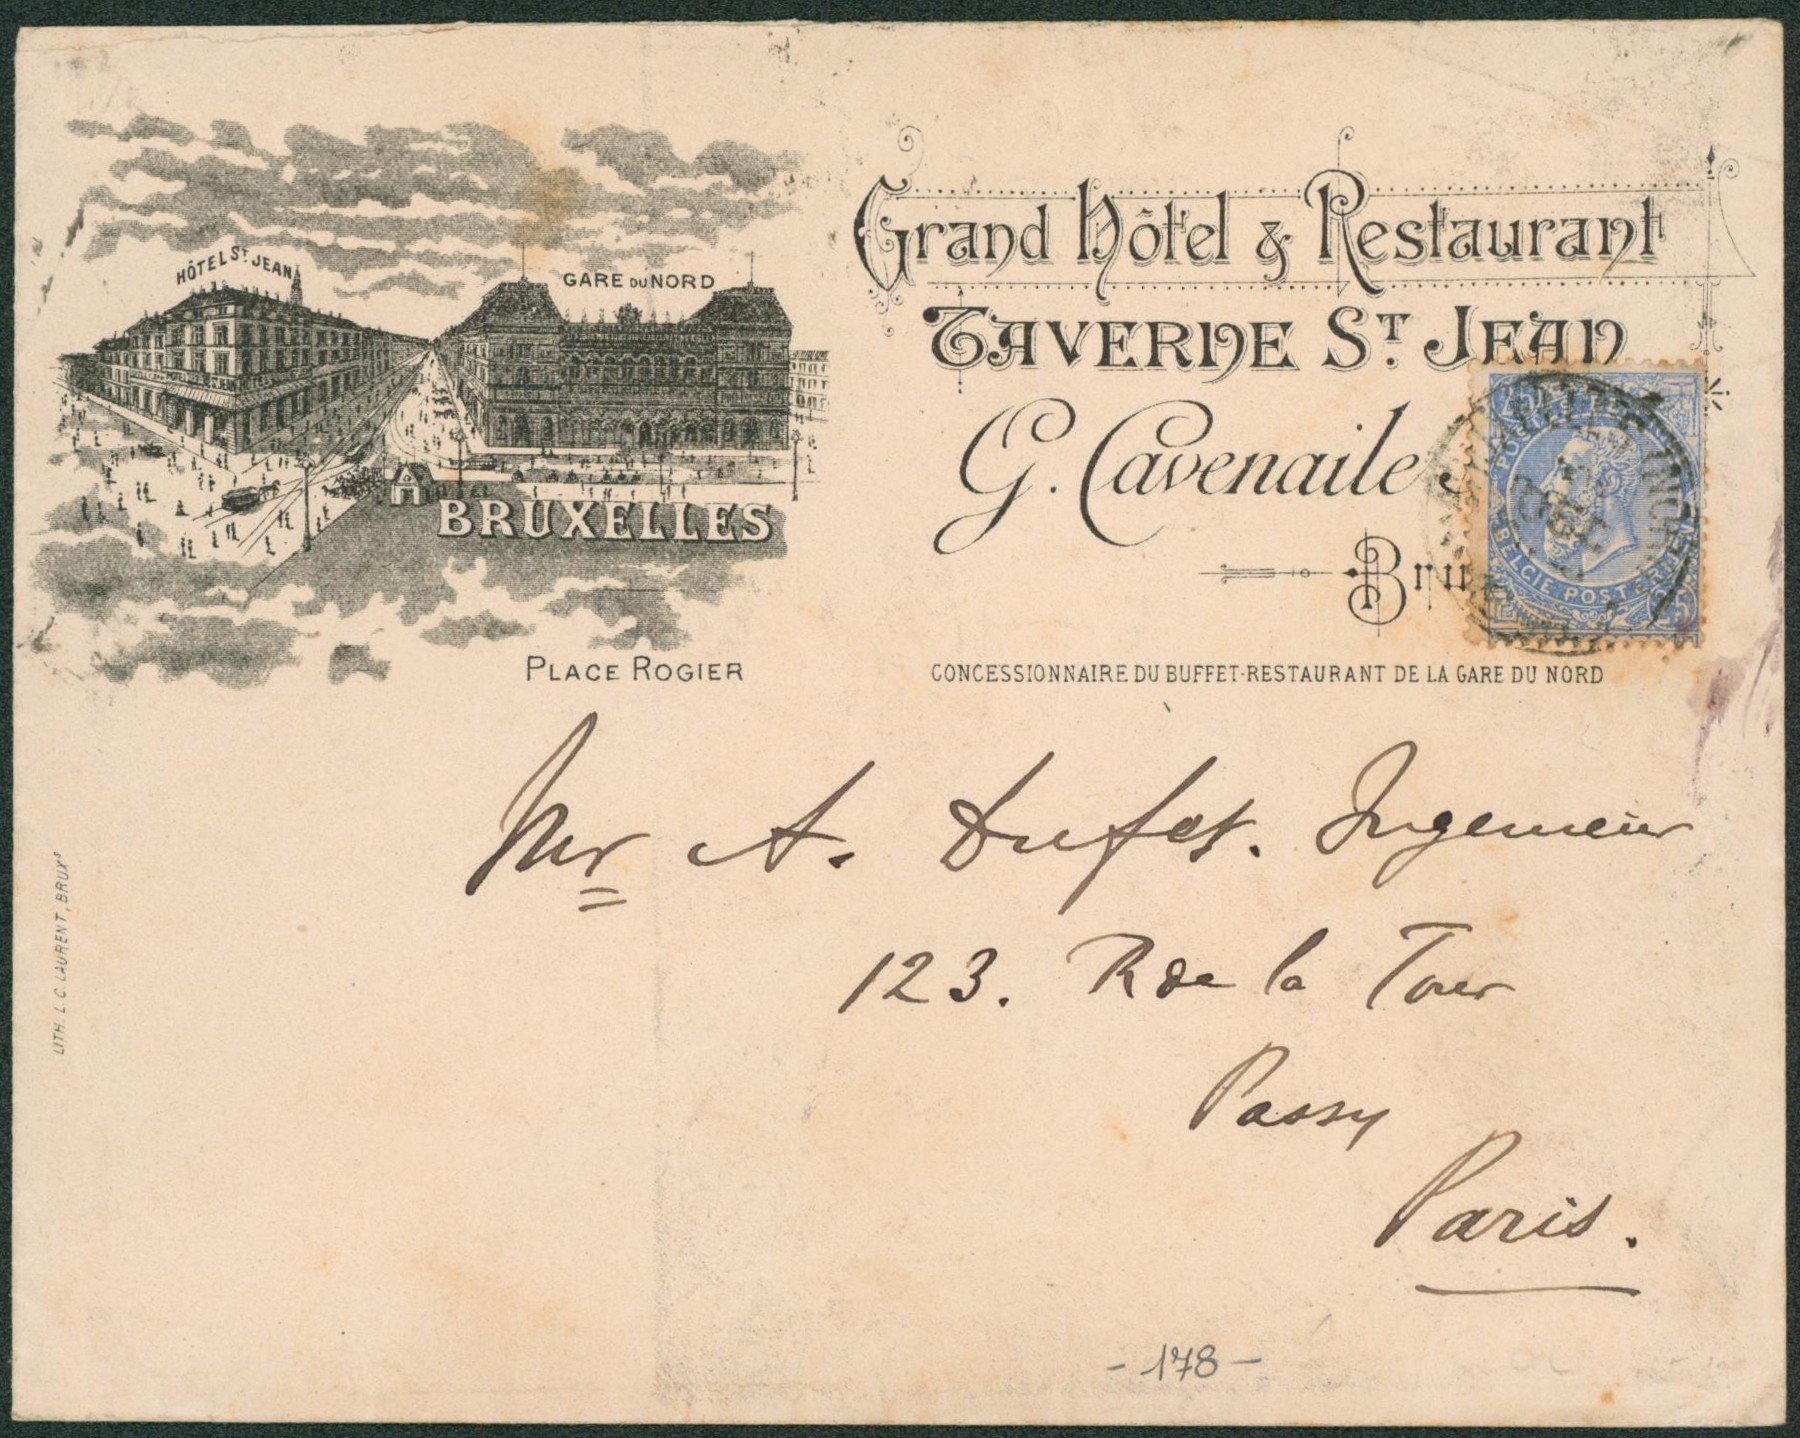 HÔTEL ST JEAN
GARE DU NORD
BRUXELLES
PLACE ROGIER
Grand Hôtel & Restaurant
TAVERNE ST. JEAN
G. Cavenaile
CONCESSIONNAIRE DU BUFFET-RESTAURANT DE LA GARE DU NORD
BELGIE POSTERIJEN
25
Mr A. Dufet. Ingenieur
123. R de la Tour
Passy
Paris.
- 178 -
LITH. L.C. LAURENT, BRUXs